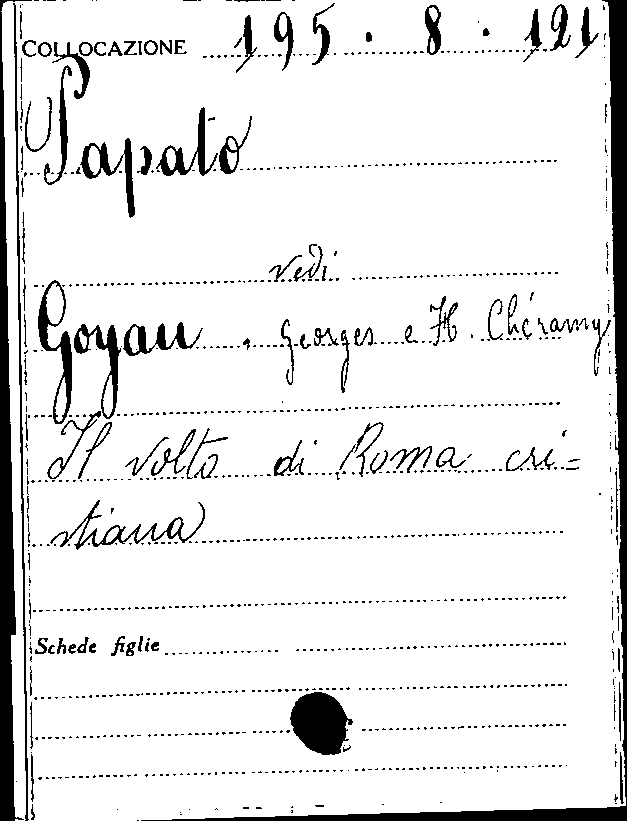 COLLOCAZIONE 195 . 8 . 121
Papato
vedi
Goyau . Georges e H. Chéramy
Il volto di Roma cri=
stiana
Schede figlie